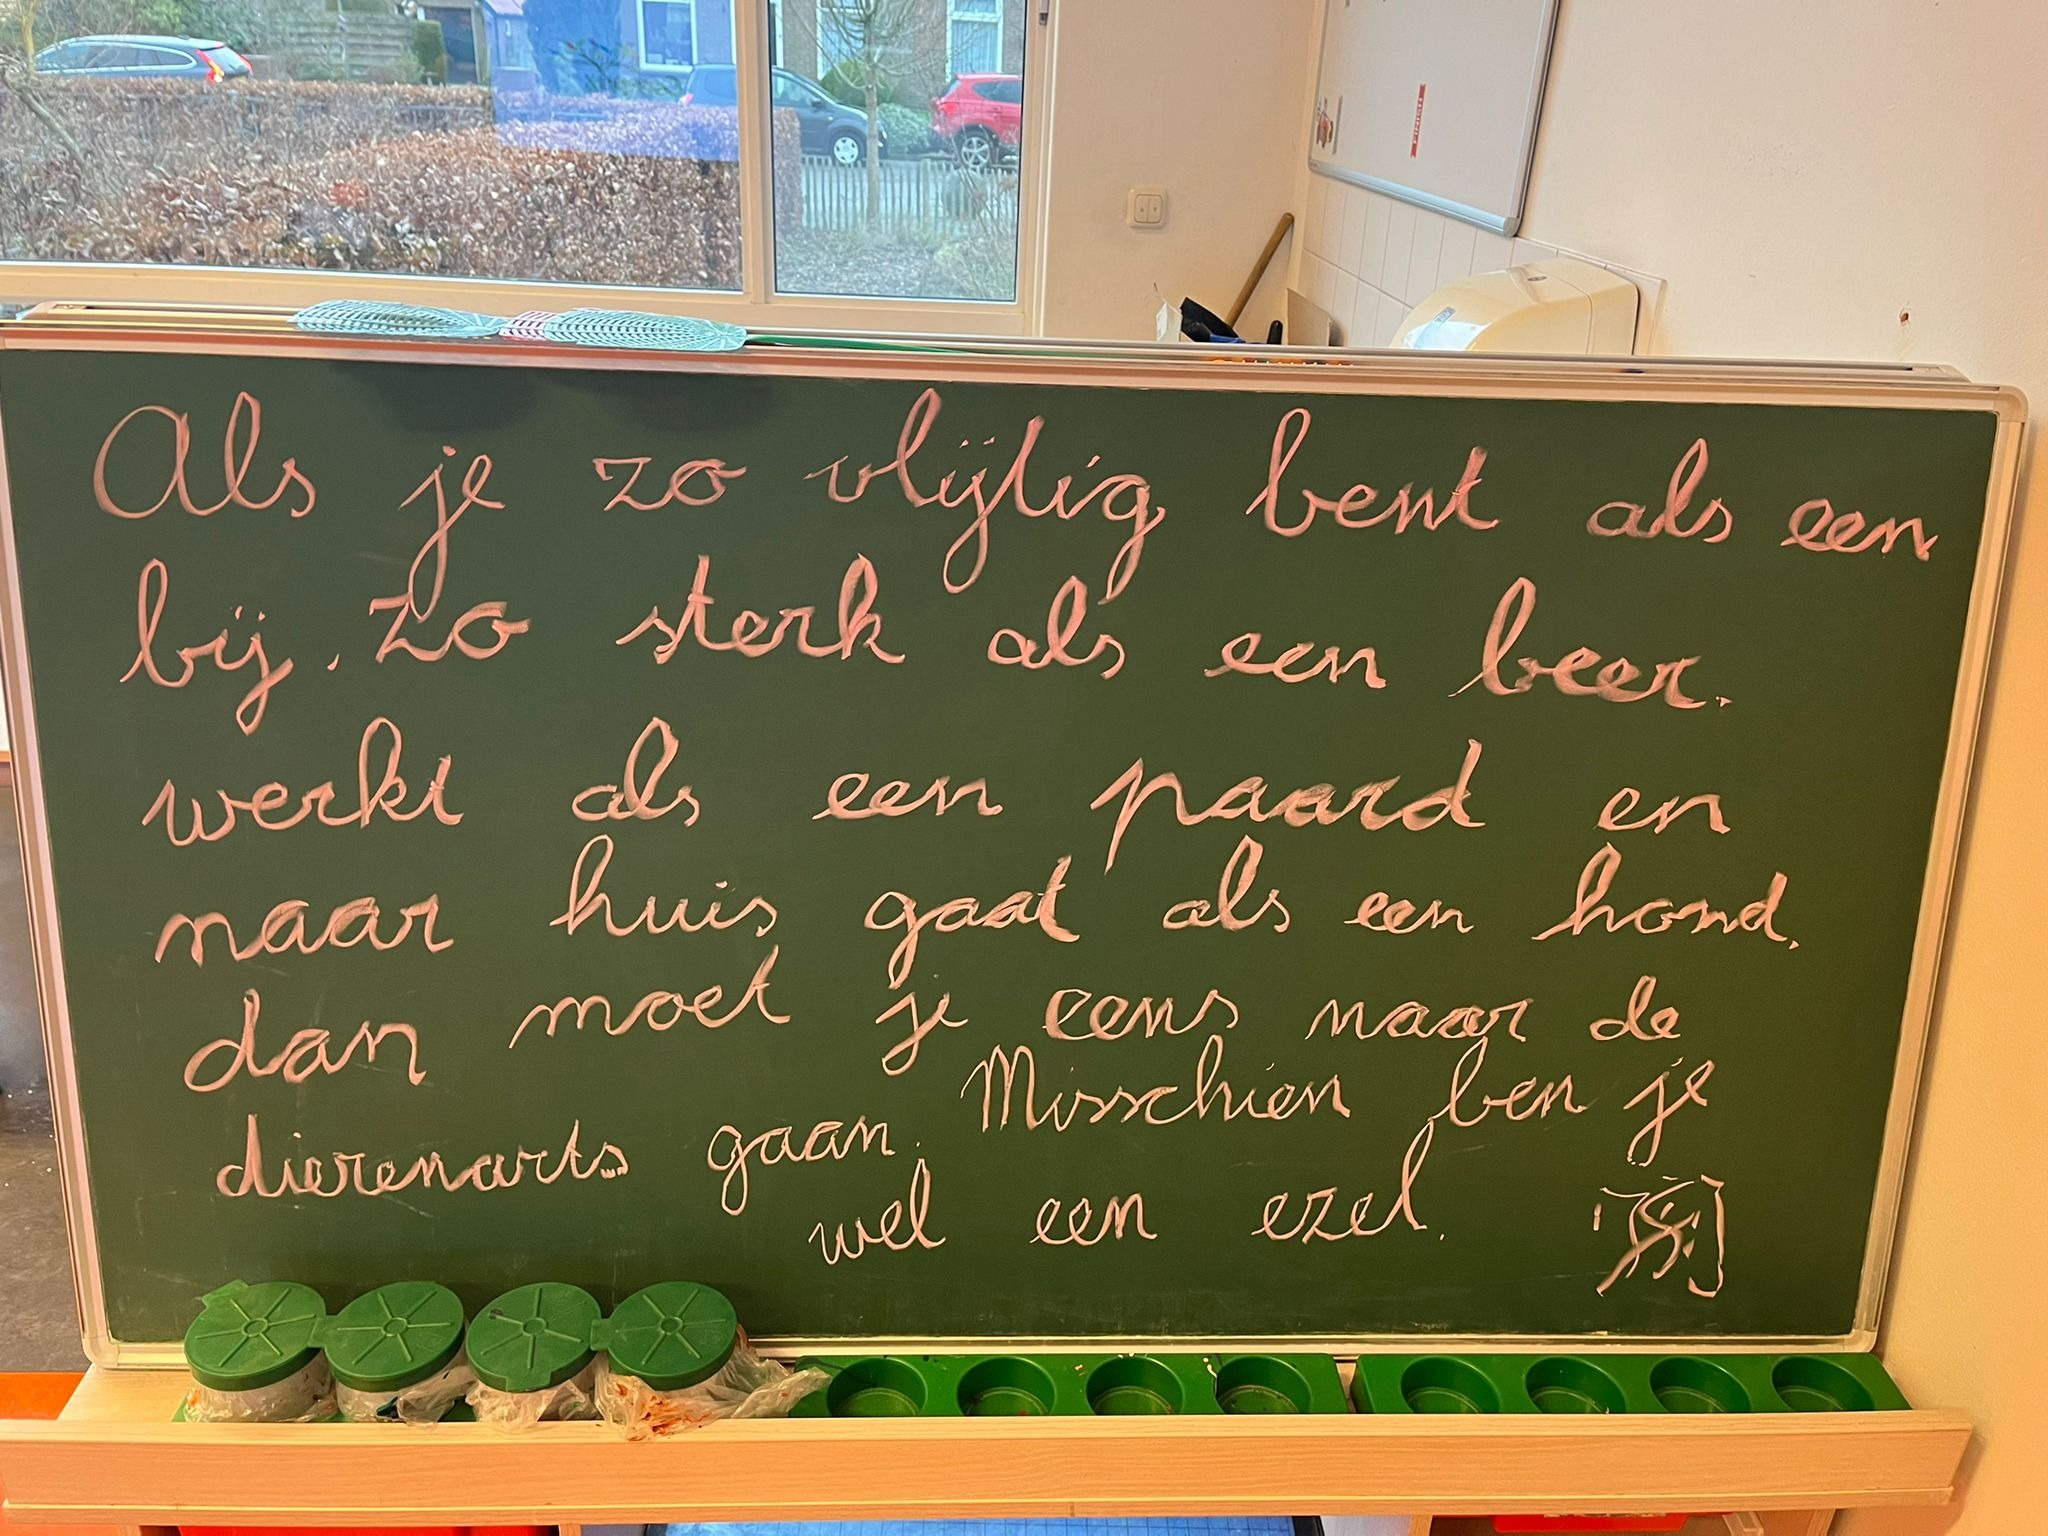 Als je zo vlijtig bent als een
bij. zo sterk als een beer.
werkt als een paard en
naar huis gaat als een hond.
dan moet je eens naar de
dierenarts gaan. Misschien ben je
wel een ezel.